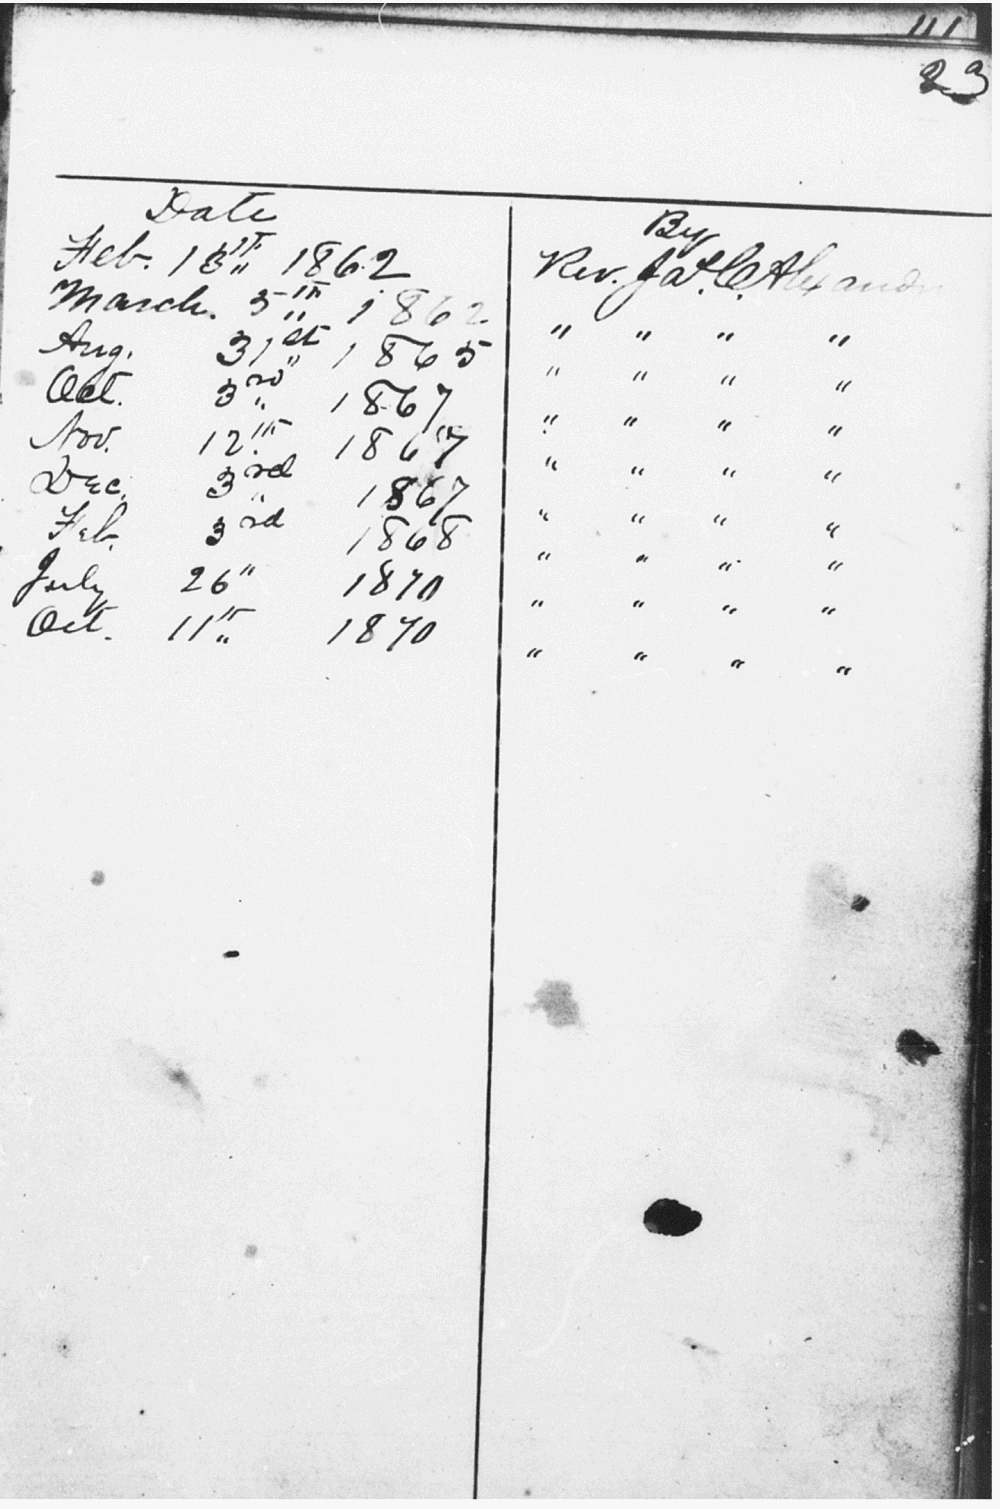 111
23
Date By
Feb. 13th 1862 Rev. Jas. C. Alexander
March. 5th 1862 " " " "
Aug. 31st 1865 " " " "
Oct. 3rd 1867 " " " "
Nov. 12th 1867 " " " "
Dec. 3rd 1867 " " " "
Feb. 3rd 1868 " " " "
July 26" 1870 " " " "
Oct. 11th 1870 " " " "